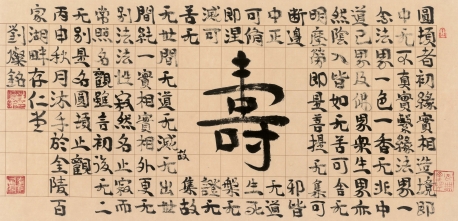 圓頓者初緣實相造境即
中无不真實繫緣法界一
念法界一色一香无非中
道己界及佛界眾生界亦
然陰入皆如无苦可舍无
明塵勞即是菩提无集可
斷邊邪皆
中正无道
可脩生死
即涅槃无
滅可證无
苦无集故
壽
无世間无道无滅故无出世
間純一實相實相外更无
別法法性寂然名止寂而
常照名觀雖言初後无二
无別是名圓頓止觀
丙申秋月沐手於金陵百
家湖畔存仁堂
劉燦銘